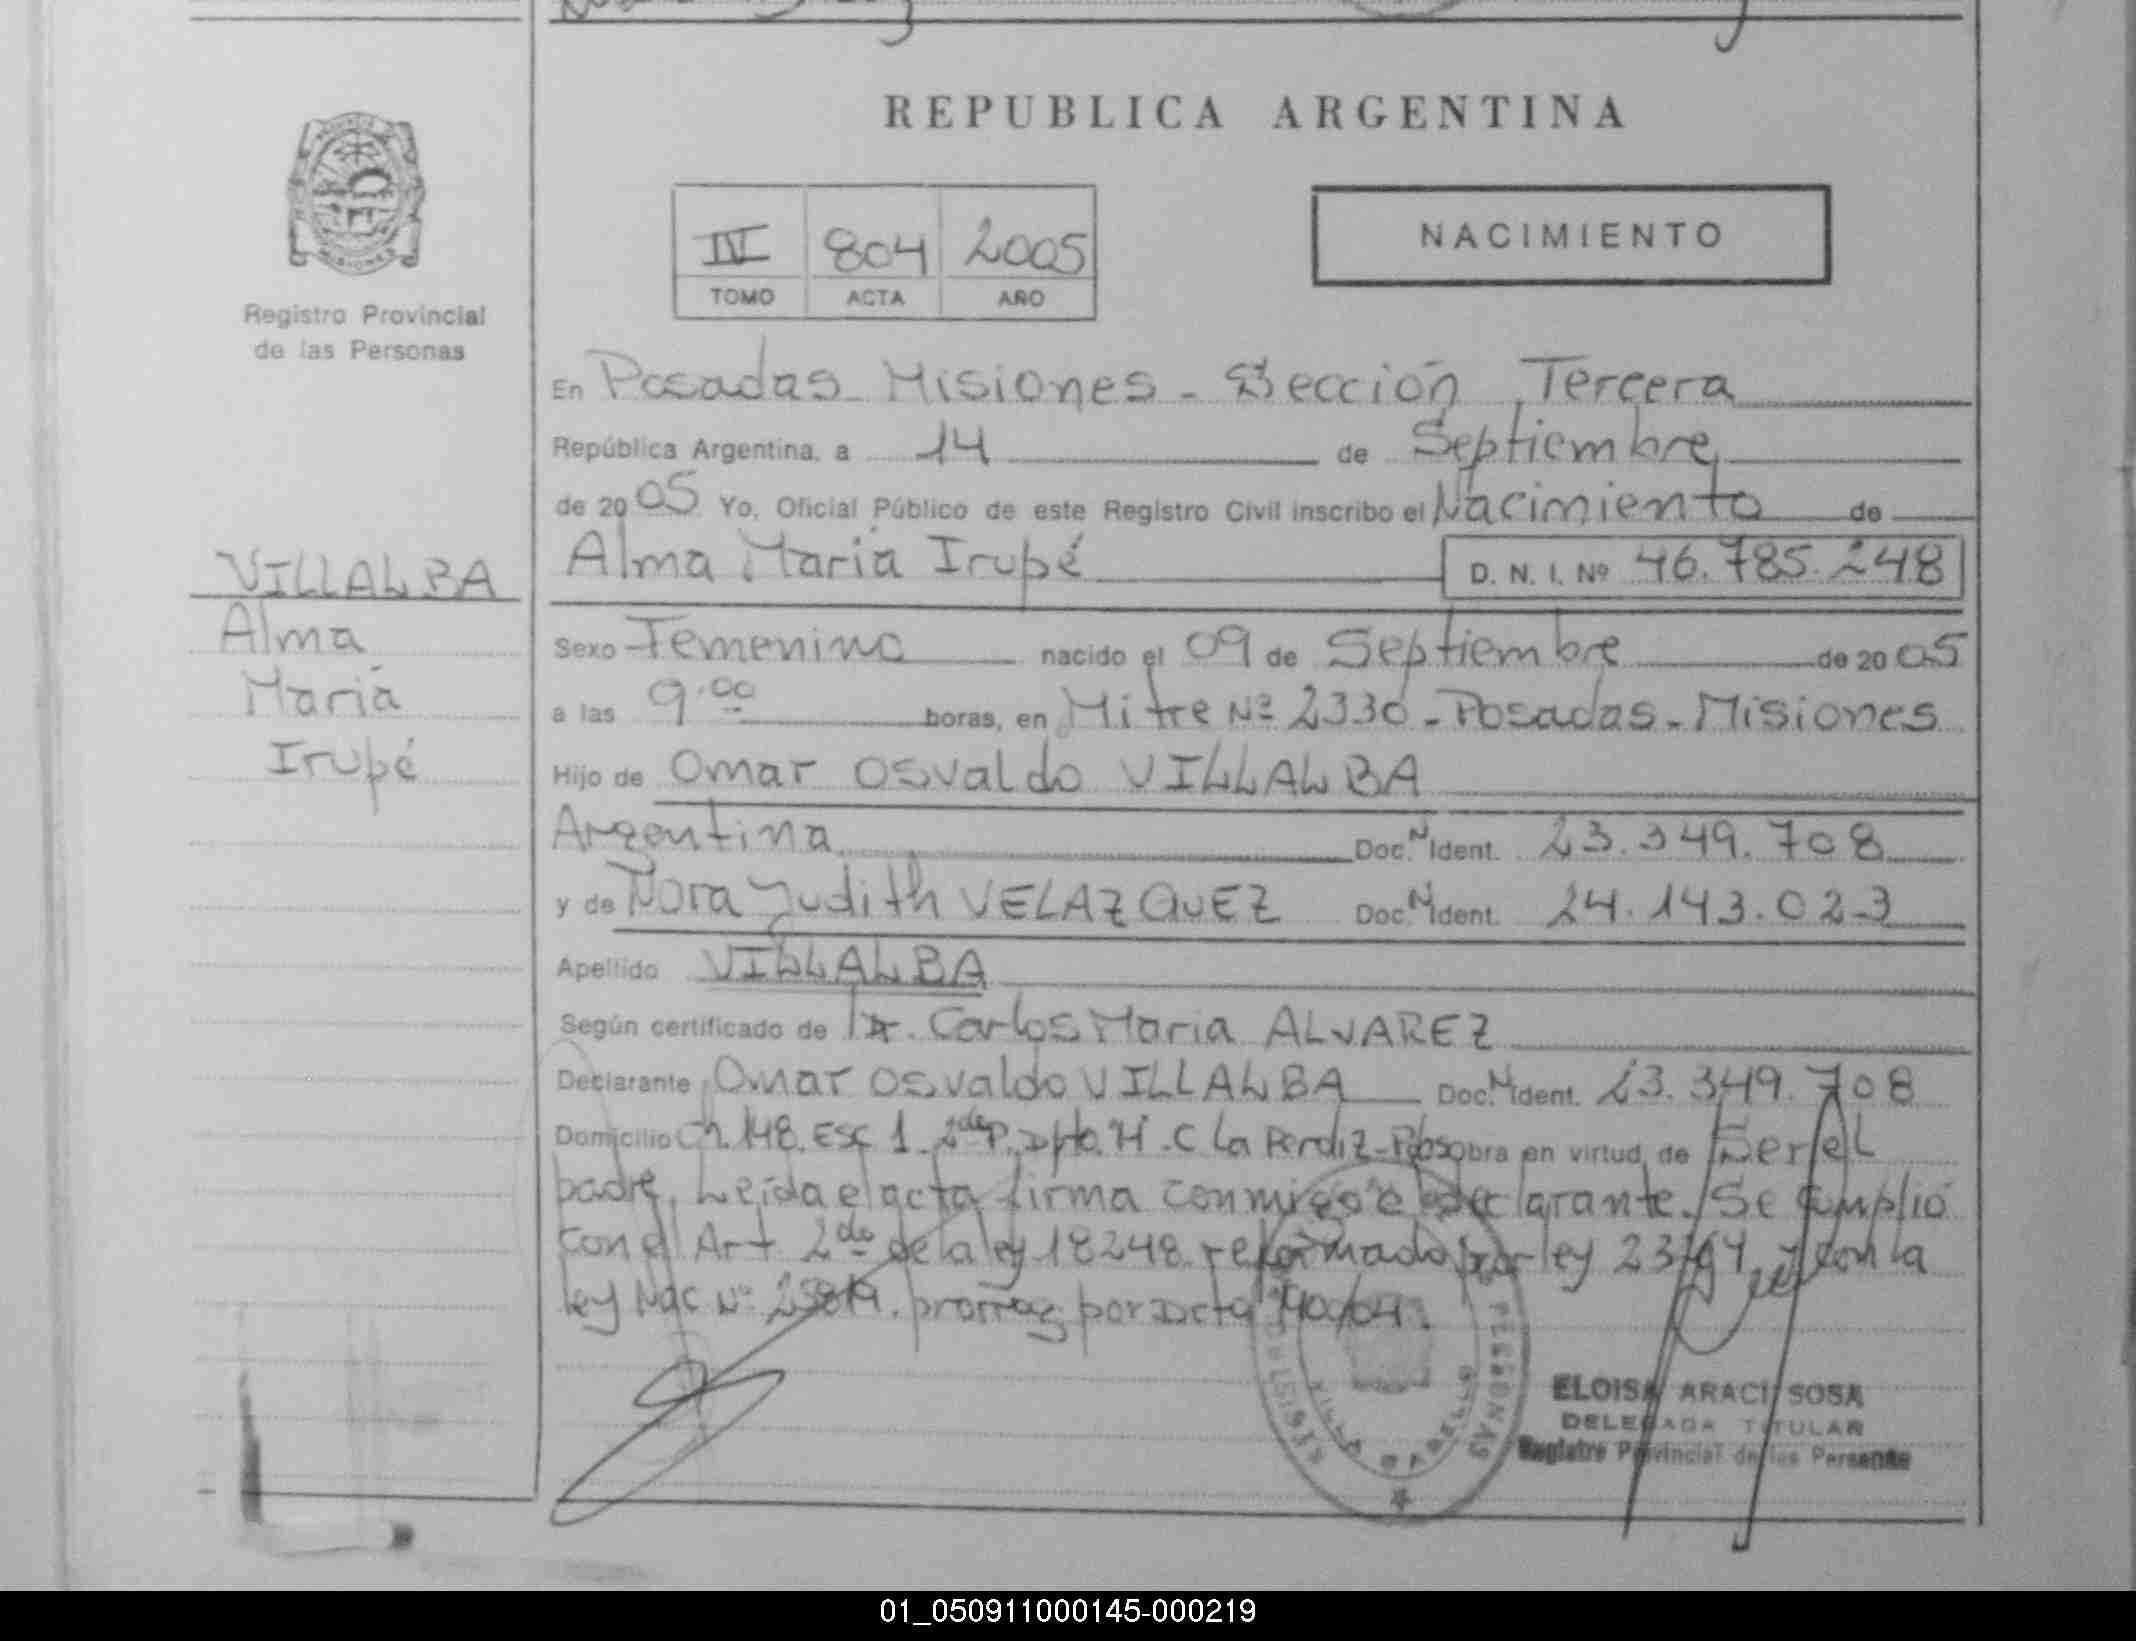 REPUBLICA ARGENTINA
PROVINCIA DE
MISIONES
Registro Provincial
de las Personas
IV 804 2005
TOMO ACTA AÑO
NACIMIENTO
En Posadas - Misiones - Sección Tercera
República Argentina, a 14 de Septiembre
de 2005 Yo, Oficial Público de este Registro Civil inscribo el Nacimiento de
Alma Maria Irupé D. N. I. Nº 46.785.248
VILLALBA
Alma
Maria
Irupé
Sexo Femenino nacido el 09 de Septiembre de 2005
a las 9.00 horas, en Mitre Nº 2330 - Posadas - Misiones
Hijo de Omar Osvaldo VILLALBA
Argentina Doc. N Ident. 23.349.708
y de Nora Judith VELAZQUEZ Doc. N Ident. 24.143.023
Apellido VILLALBA
Según certificado de Dr. Carlos Maria ALVAREZ
Declarante Omar Osvaldo VILLALBA Doc. N Ident. 23.349.708
Domicilio Ch. 148. Esc 1 2do P. Dpto. "H". C La Perdiz - Pdas obra en virtud de Ser el
padre. Leída el acta firma conmigo el declarante. Se cumplió
con el Art 2do de la ley 18248 reformado por ley 23164 y con la
ley Nac Nº 25819. prorrog por Dcto 740/04.
ELOISA ARACI SOSA
DELEGADA TITULAR
Registro Provincial de las Personas
PERSONAS
VILLA
01_050911000145-000219